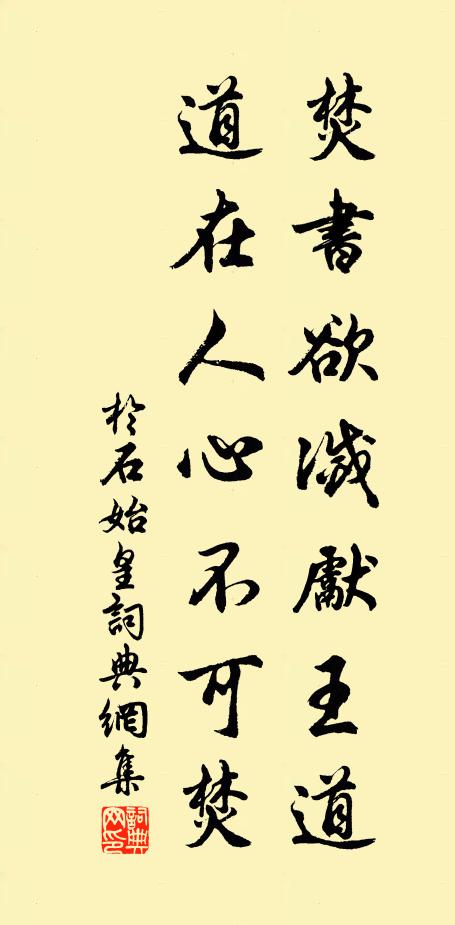 焚書欲滅獻王道
道在人心不可焚
於石始皇詞典網集
詞典網印